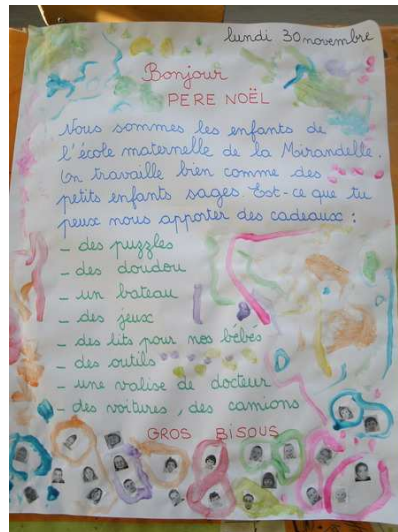 lundi 30 novembre
Bonjour
PERE NOËL
Nous sommes les enfants de
l'école maternelle de la Mirandelle.
On travaille bien comme des
petits enfants sages. Est-ce que tu
peux nous apporter des cadeaux :
- des puzzles
- des doudou
- un bateau
- des jeux
- des lits pour nos bébés
- des outils
- une valise de docteur
- des voitures, des camions
GROS BISOUS